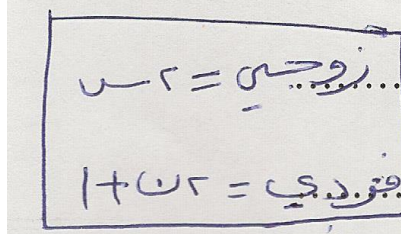 زوجي = ٢س
فردي = ٢ن + ١